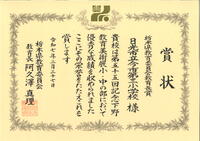 賞状
栃木県教育委員会教育長賞
日光市立今市第三小学校様
貴校は第五十五回記念下野
教育美術展小・中の部において
優秀な成績を収められました
ここにその栄誉をたたえこれを
賞します
令和七年二月二十七日
栃木県教育委員会
教育長 阿久澤真理